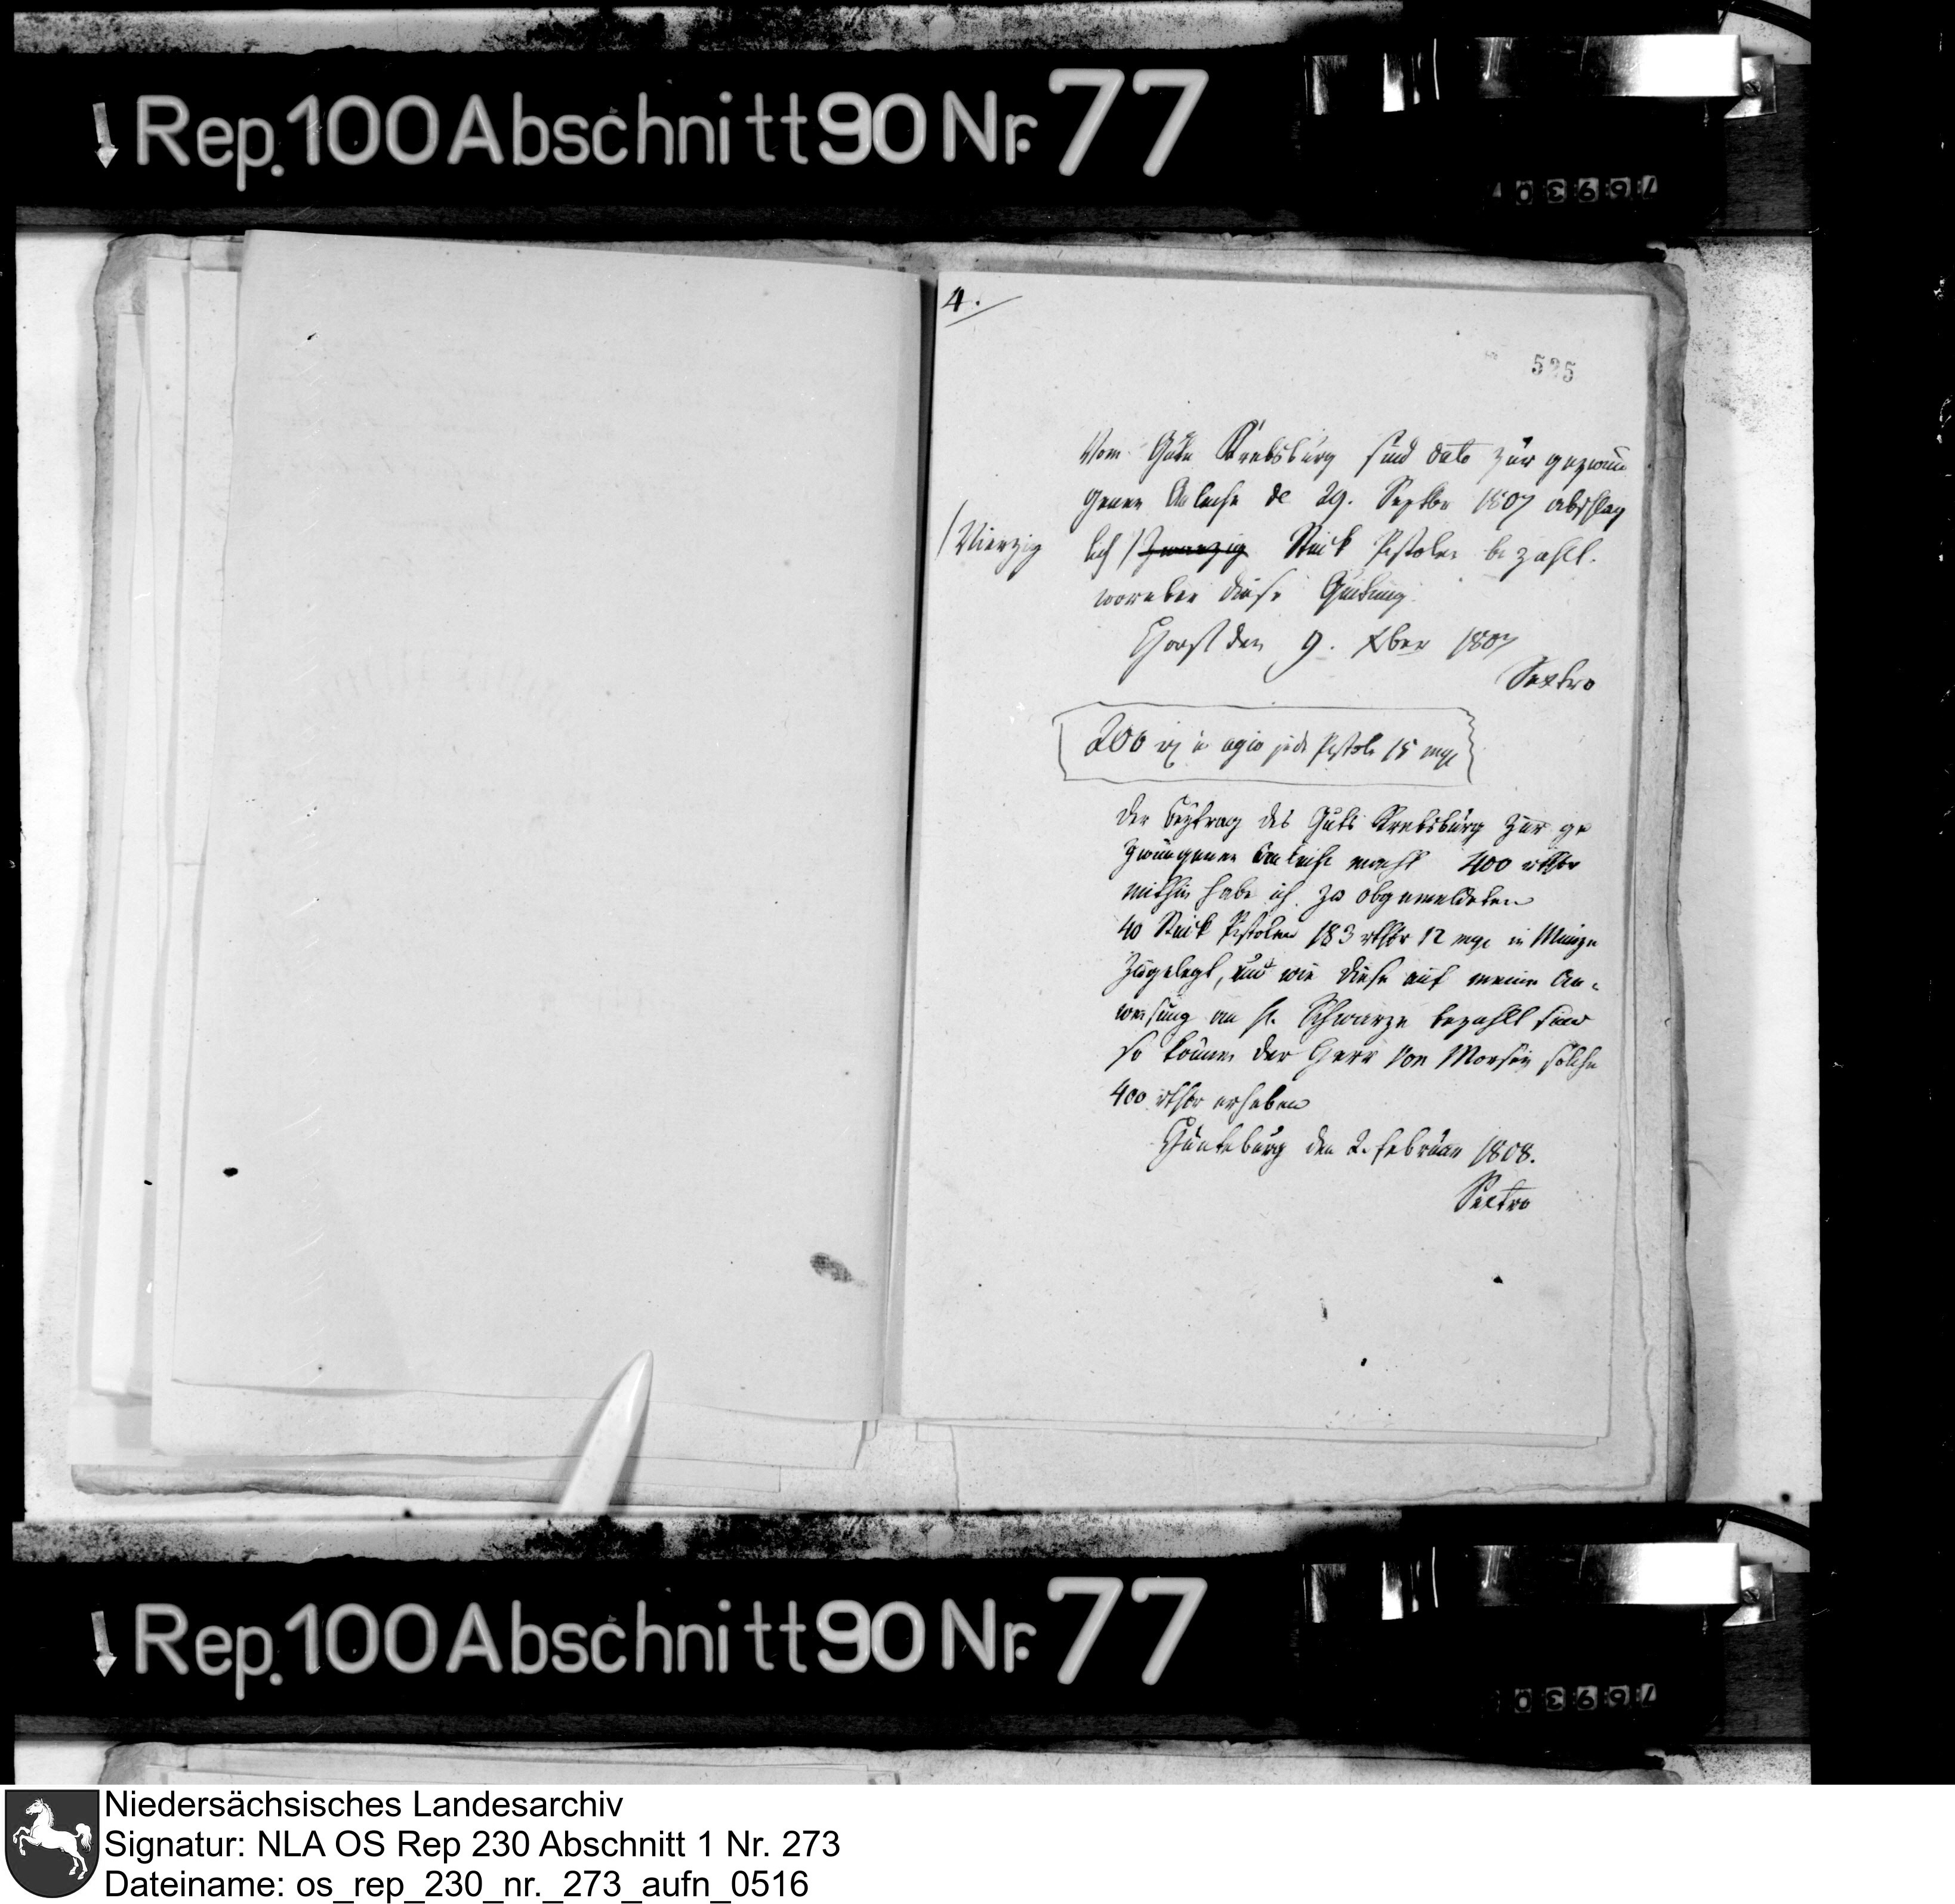 Rep. 100 Abschnitt 90 Nr. 77
4.
525
Vom Gute Krebsburg sind dato zur gezwun
genen Anleihe de 29. Septbr 1807 abschlag
/Vierzig
lich / Zwanzig Stück Pistolen bezahlt.
worüber diese Quitung
Horst den 9. Xber 1807
Sextro
200 rt in agio jede Pistole 15 mgr
Der Beytrag des Guts Krebsburg zur ge
zwungenen Anleihe macht 400 rthlr
mithin habe ich zu obgemeldeten
40 Stück Pistolen 183 rthlr 12 mgr in Münze
zugelegt, und wie diese auf meine An-
weisung an H. Schwarze bezahlt sind
so können der Herr von Morsey solche
400 rthlr erheben
den 2. Februar 1808.
Sextro
Rep. 100 Abschnitt 90 Nr. 77
Niedersächsisches Landesarchiv
Signatur: NLA OS Rep 230 Abschnitt 1 Nr. 273
Dateiname: os_rep_230_nr._273_aufn_0516